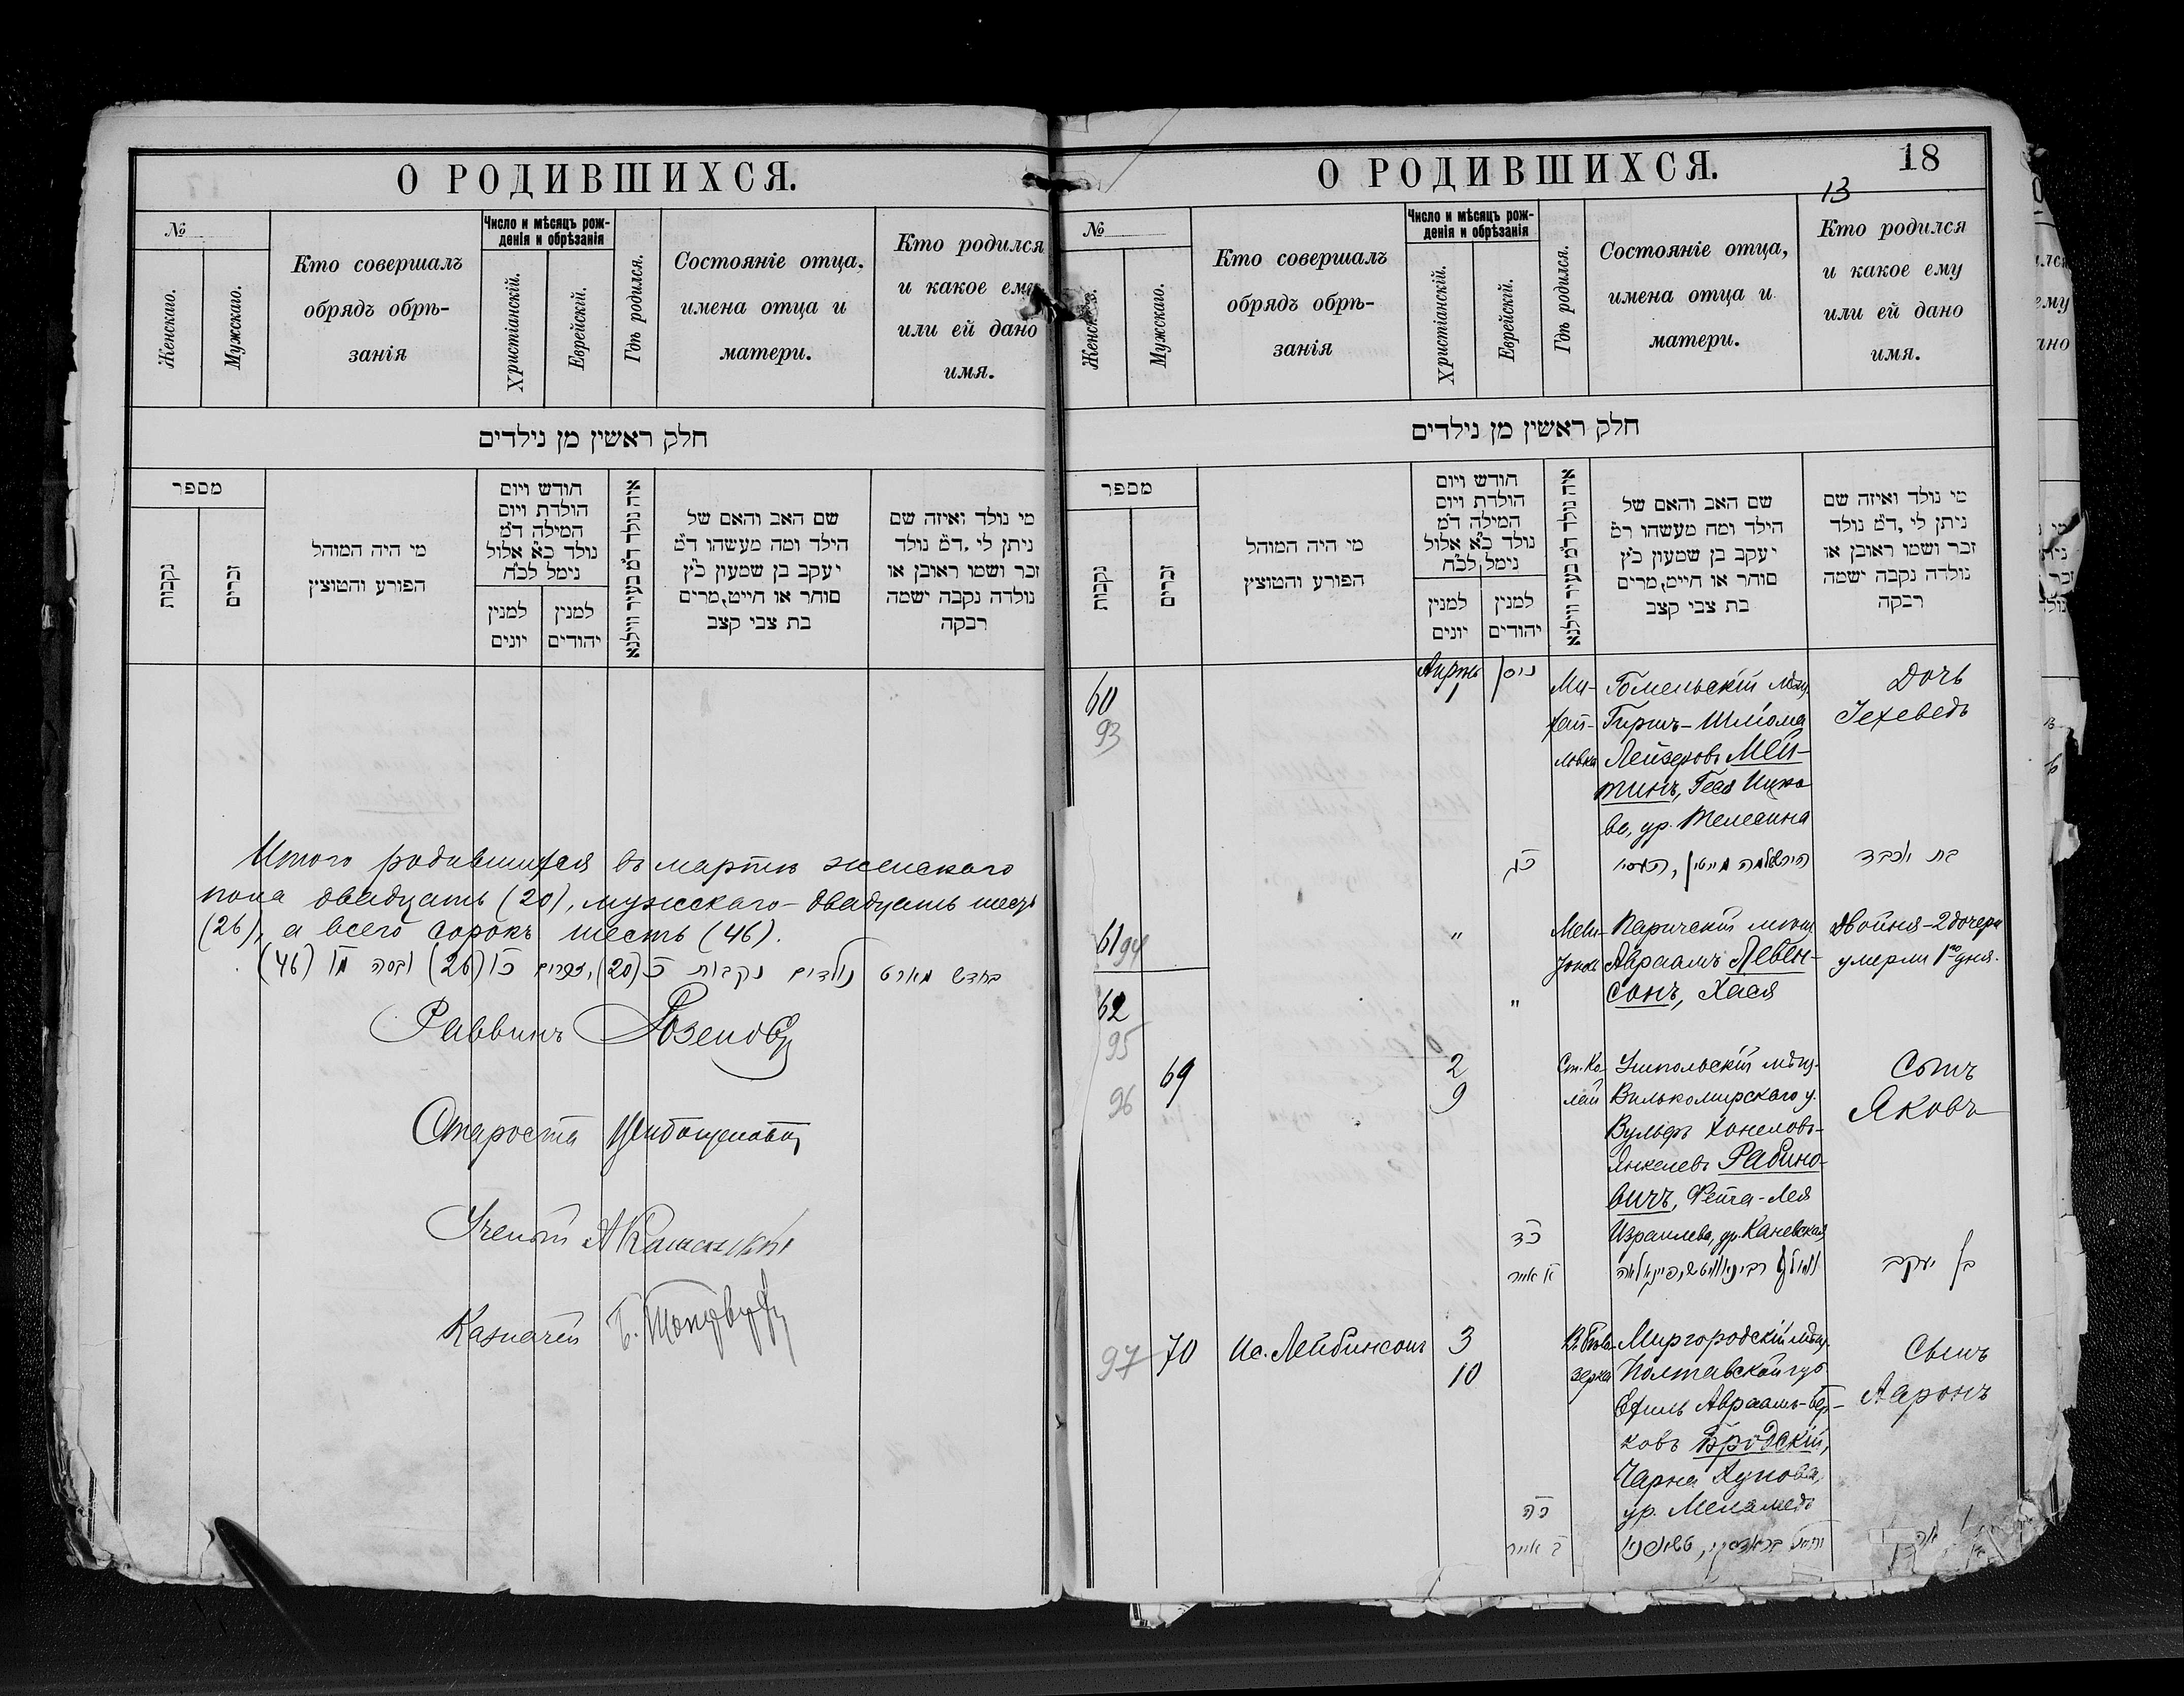 О РОДИВШИХСЯ.
№
Женскаго.
Мужскаго.
Кто совершалъ
обрядъ обрѣ-
занія
Число и мѣсяцъ рож-
денія и обрѣзанія
Христіанскій.
Еврейскій.
Гдѣ родился.
Состояніе отца,
имена отца и
матери.
Кто родился
и какое ему
или ей дано
имя.
חלק ראשין מן נילדים
מספר
נקבות
זכרים
מי היה המוהל
הפורע והמוצץ
חודש ויום
הולדת ויום
המילה ד״מ
נולד כ״א אלול
נימל לכ״ח
למנין
יונים
למנין
יהודים
איה נולד ד״מ בעיר ווילנא
שם האב והאם של
הילד ומה מעשהו ד״מ
יעקב בן שמעון כ״ץ
סוחר או חייט, מרים
בת צבי קצב
מי נולד ואיזה שם
ניתן לי, ד״מ נולד
זכר ושמו ראובן או
נולדה נקבה ושמה
רבקה
Итого родившихся въ мартѣ женскаго
пола двадцать (20), мужскаго - двадцать шесть
(26), а всего сорокъ шесть (46).
בחדש מארט נולדים נקבות כ׳ (20), זכרים כ״ו (26) ובסה מ״ו (46)
Раввинъ
Староста
Ученый
Казначей
О РОДИВШИХСЯ.
18
13
№
Женскаго.
Мужскаго.
Кто совершалъ
обрядъ обрѣ-
занія
Число и мѣсяцъ рож-
денія и обрѣзанія
Христіанскій.
Еврейскій.
Гдѣ родился.
Состояніе отца,
имена отца и
матери.
Кто родился
и какое ему
или ей дано
имя.
חלק ראשין מן נילדים
מספר
נקבות
זכרים
מי היה המוהל
הפורע והמוצץ
חודש ויום
הולדת ויום
המילה ד״מ
נולד כ״א אלול
נימל לכ״ח
למנין
יונים
למנין
יהודים
איה נולד ד״מ בעיר ווילנא
שם האב והאם של
הילד ומה מעשהו ד״מ
יעקב בן שמעון כ״ץ
סוחר או חייט, מרים
בת צבי קצב
מי נולד ואיזה שם
ניתן לי, ד״מ נולד
זכר ושמו ראובן או
נולדה נקבה ושמה
רבקה
Апрѣль ניסן
60 1 Ми- Гомельскій мѣщ. Дочь
93 хай- Гиршъ-Шлiома Iехеведъ
ловка Лейзеровъ Мей-
тинъ, Геся Ицко-
ва, ур. Телесина
כג
בת יוכבד
61 94 " Паричскій мѣщ. Двойня-2 дочери
Авраамъ Левен- умерли 1го дня.
62 " сонъ, Хася
95
69 2 Ушпольскій мѣщ. Сынъ
96 9 Вилькомирскаго у. Яковъ
Вульфъ Хонеловъ-
Янкелевъ Рабино-
вичъ, Фейга-Лея
כד Израилева, ур. Каневская
א אייר
בן יעקב
97 70 Ис. Лейбинсонъ 3 Миргородскій мѣщ. Сынъ
10 Полтавской губ. Ааронъ
Ехиль Авраамъ-Бер-
ковъ Бродскій,
Чарна Хунова,
כה ур. Меламедъ
ב אייר